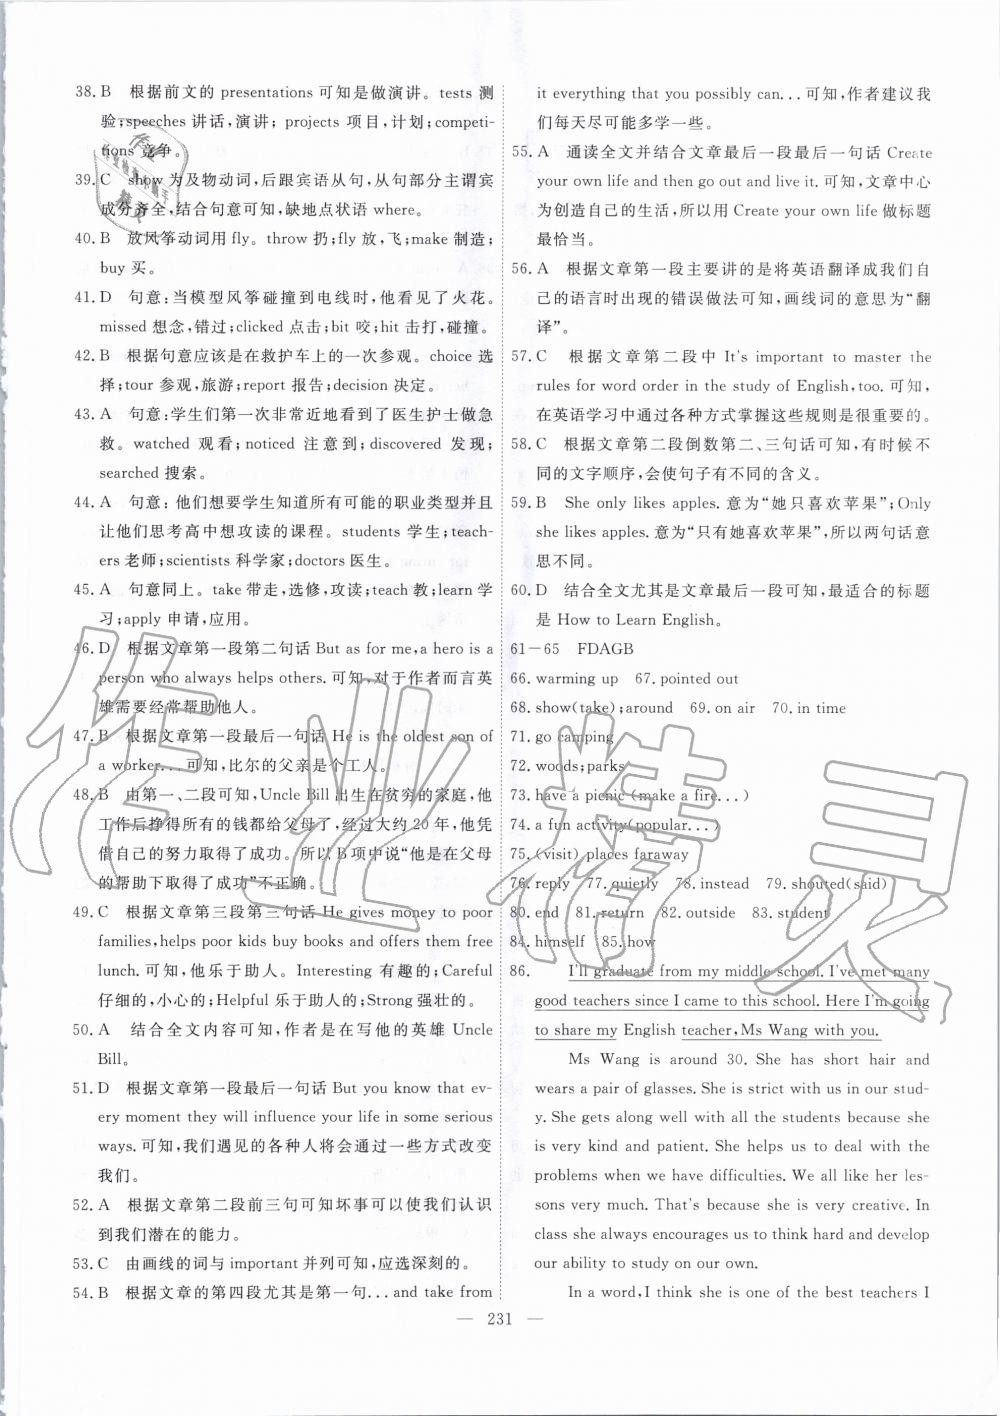 38. B　根据前文的 presentations 可知是做演讲。tests 测
验;speeches 讲话,演讲; projects 项目,计划; competi-
tions 竞争。
39. C　show 为及物动词,后跟宾语从句,从句部分主谓宾
成分齐全,结合句意可知,缺地点状语 where。
40. B　放风筝动词用 fly。throw 扔;fly 放,飞;make 制造;
buy 买。
41. D　句意:当模型风筝碰撞到电线时,他看见了火花。
missed 想念,错过;clicked 点击;bit 咬;hit 击打,碰撞。
42. B　根据句意应该是在救护车上的一次参观。choice 选
择;tour 参观,旅游;report 报告;decision 决定。
43. A　句意:学生们第一次非常近地看到了医生护士做急
救。watched 观看; noticed 注意到; discovered 发现;
searched 搜索。
44. A　句意: 他们想要学生知道所有可能的职业类型并且
让他们思考高中想攻读的课程。students 学生; teach-
ers 老师;scientists 科学家;doctors 医生。
45. A　句意同上。take 带走,选修,攻读;teach 教;learn 学
习;apply 申请,应用。
46. D　根据文章第一段第二句话 But as for me,a hero is a
person who always helps others. 可知,对于作者而言英
雄需要经常帮助他人。
47. B　根据文章第一段最后一句话 He is the oldest son of
a worker... 可知,比尔的父亲是个工人。
48. B　由第一、二段可知,Uncle Bill 出生在贫穷的家庭,他
工作后挣得所有的钱都给父母了,经过大约 20 年,他凭
借自己的努力取得了成功。所以 B 项中说“他是在父母
的帮助下取得了成功”不正确。
49. C　根据文章第三段第三句话 He gives money to poor
families,helps poor kids buy books and offers them free
lunch. 可知,他乐于助人。Interesting 有趣的; Careful
仔细的,小心的;Helpful 乐于助人的;Strong 强壮的。
50. A　结合全文内容可知,作者是在写他的英雄 Uncle
Bill。
51. D　根据文章第一段最后一句话 But you know that ev-
ery moment they will influence your life in some serious
ways. 可知,我们遇见的各种人将会通过一些方式改变
我们。
52. A　根据文章第二段前三句可知坏事可以使我们认识
到我们潜在的能力。
53. C　由画线的词与 important 并列可知,应选深刻的。
54. B　根据文章的第四段尤其是第一句... and take from
it everything that you possibly can... 可知,作者建议我
们每天尽可能多学一些。
55. A　通读全文并结合文章最后一段最后一句话 Create
your own life and then go out and live it. 可知,文章中心
为创造自己的生活,所以用 Create your own life 做标题
最恰当。
56. A　根据文章第一段主要讲的是将英语翻译成我们自
己的语言时出现的错误做法可知,画线词的意思为“翻
译”。
57. C　根据文章第二段中 It's important to master the
rules for word order in the study of English,too. 可知,
在英语学习中通过各种方式掌握这些规则是很重要的。
58. C　根据文章第二段倒数第二、三句话可知,有时候不
同的文字顺序,会使句子有不同的含义。
59. B　She only likes apples. 意为“她只喜欢苹果”;Only
she likes apples. 意为“只有她喜欢苹果”,所以两句话意
思不同。
60. D　结合全文尤其是文章最后一段可知,最适合的标题
是 How to Learn English。
61－65　FDAGB
66. warming up　67. pointed out
68. show(take);around　69. on air　70. in time
71. go camping
72. woods;parks
73. have a picnic(make a fire...)
74. a fun activity(popular...)
75. (visit) places faraway
76. reply　77. quietly　78. instead　79. shouted(said)
80. end　81. return　82. outside　83. student
84. himself　85. how
86.　I'll graduate from my middle school. I've met many
good teachers since I came to this school. Here I'm going
to share my English teacher,Ms Wang with you.
Ms Wang is around 30. She has short hair and
wears a pair of glasses. She is strict with us in our stud-
y. She gets along well with all the students because she
is very kind and patient. She helps us to deal with the
problems when we have difficulties. We all like her les-
sons very much. That's because she is very creative. In
class she always encourages us to think hard and develop
our ability to study on our own.
In a word,I think she is one of the best teachers I
— 231 —
作业精灵